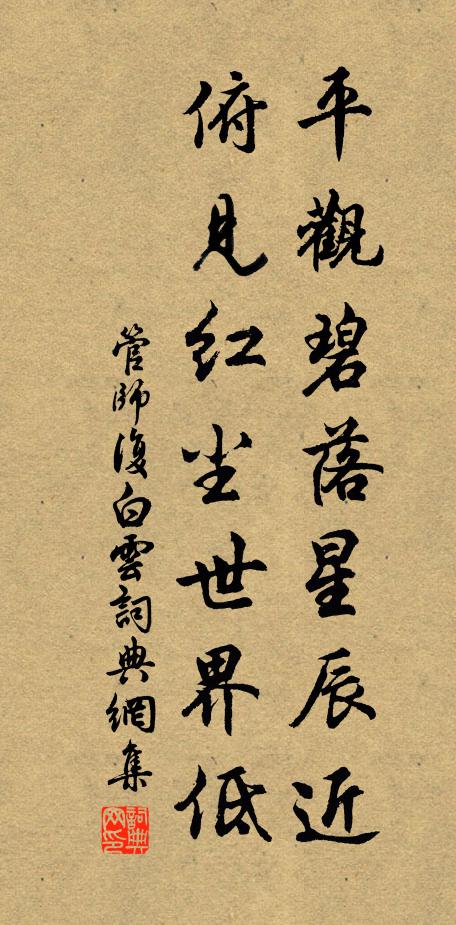 平觀碧落星辰近
俯見红尘世界低
管師復白雲詞典網集
詞典网印